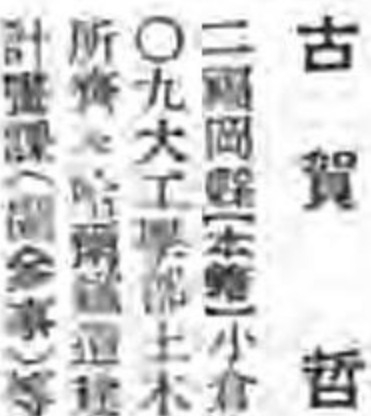 古賀哲
二福岡縣【本籍】小倉
〇九大工學部土木
所齊々哈爾鐵道建
計畫課（參事）等